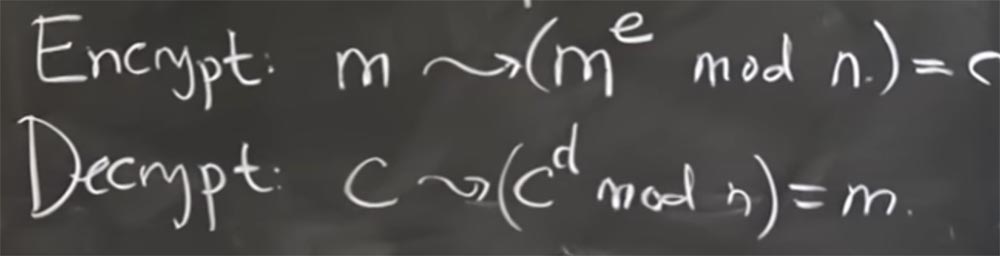 Encrypt: m ⇝ (m^e mod n.) = c
Decrypt: c ⇝ (c^d mod n) = m.